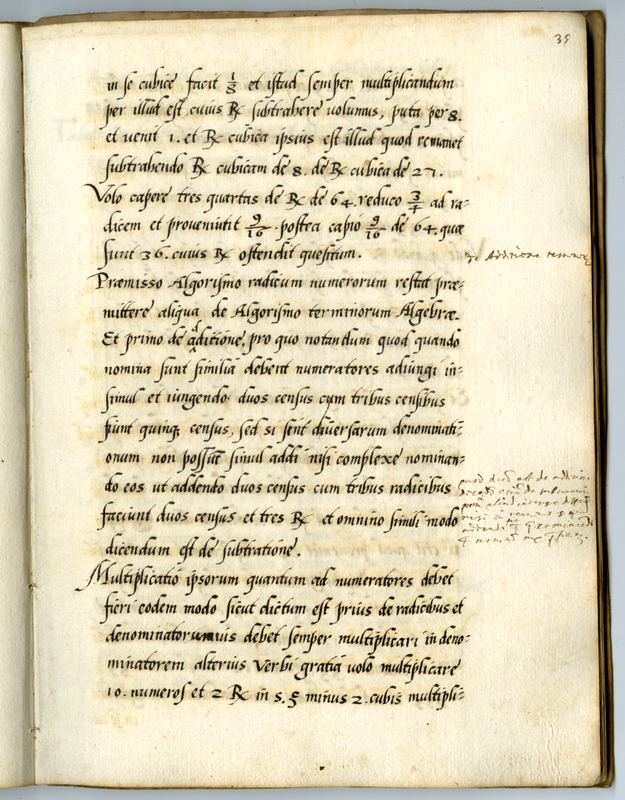 35
in se cubice facit 1/8 et istud semper multiplicandum
per illud est cuius ℞ subtrahere volumus, puta per 8.
et venit 1. et ℞ cubica ipsius est illud quod remanet
subtrahendo ℞ cubicam de 8. de ℞ cubica de 27.
Volo capere tres quartas de ℞ de 64. reduco 3/4 ad ra-
dicem et proveniutit 9/16. postea capio 9/16 de 64. quæ
sunt 36. cuius ℞ ostendit quesitum.
de Additione
Præmisso Algorismo radicum numerorum restat præ-
mittere aliqua de Algorismo terminorum Algebræ.
Et primo de additione, pro quo notandum quod quando
nomina sunt similia debent numeratores adiungi in-
simul et iungendo duos census cum tribus censibus
fiunt quinq; census, sed si sint diversarum denominati-
onum non possut̄ simul addi nisi complexe nominan-
do eos ut addendo duos census cum tribus radicibus
faciunt duos census et tres ℞ et omnino simili modo
dicendum est de subtratione.
Multiplicatio ipsorum quantum ad numeratores debet
fieri eodem modo sicut dictum est prius de radicibus et
denominatorumuis debet semper multiplicari in deno-
minatorem alterius Verbi gratia volo multiplicare
10. numeros et 2 ℞ in 5. ξ minus 2. cubis multipli-